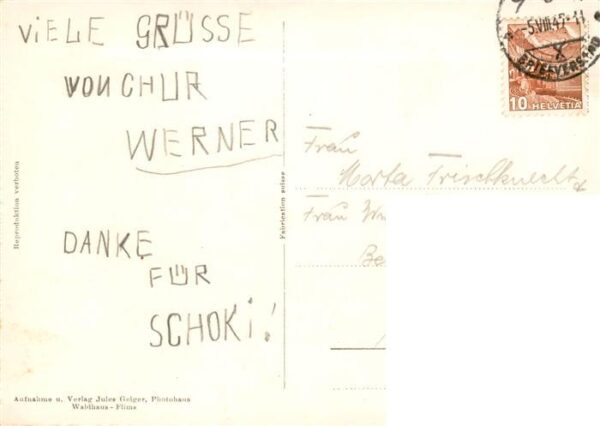 ViELE GRÜSSE
VON CHUR
WERNER
DANKE
FÜR
SCHOKi!
Reproduktion verboten
Aufnahme u. Verlag Jules Geiger, Photohaus
Waldhaus - Flims
Fabrication suisse
-5.VIII.47-11
X
BRIEFVERSAND
10 HELVETIA
Frau
Marta Frischknecht
Frau